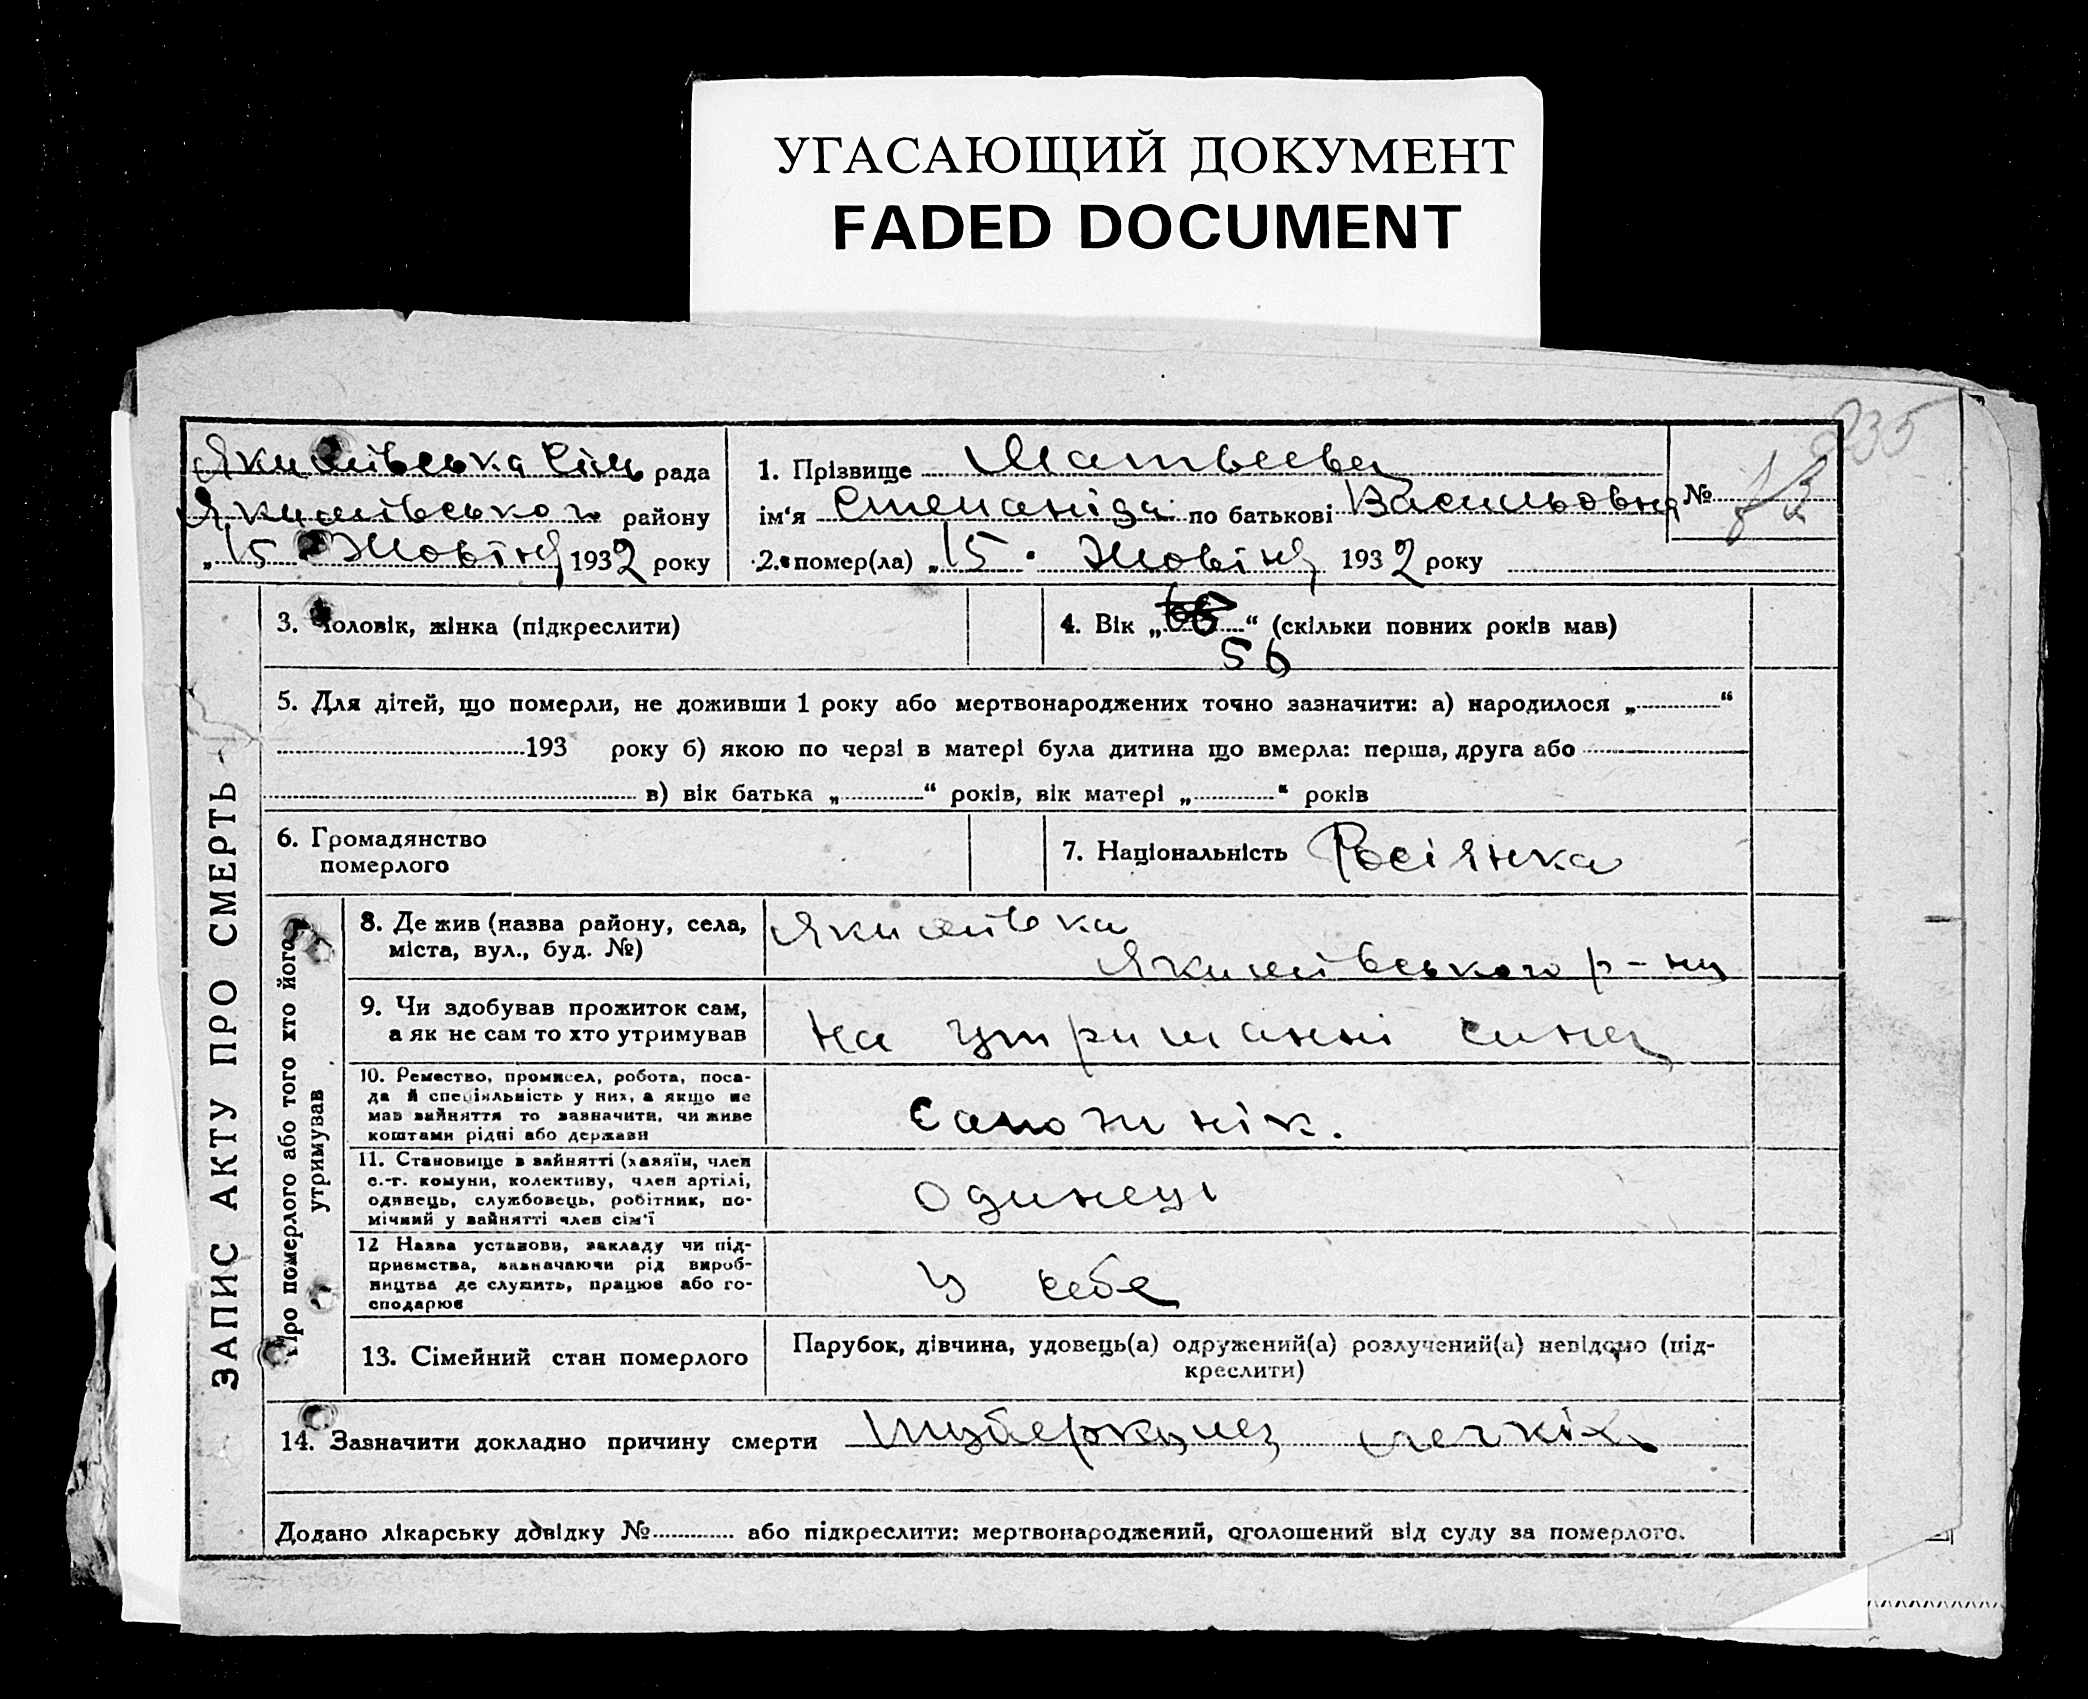 УГАСАЮЩИЙ ДОКУМЕНТ
FADED DOCUMENT
235
Якимівська Сіль рада
Якимівського району
„15 Жовтня 1932 року
1. Прізвище Матвеева
ім'я Степаніда по батькові Васильовна
№
2. помер(ла) „15. Жовтня 1932 року
ЗАПИС АКТУ ПРО СМЕРТЬ
3. Чоловік, жінка (підкреслити)
4. Вік „66“ (скільки повних років мав)
56
5. Для дітей, що померли, не доживши 1 року або мертвонароджених точно зазначити: а) народилося „ “
193 року б) якою по черзі в матері була дитина що вмерла: перша, друга або
в) вік батька „ “ років, вік матері „ “ років
6. Громадянство
померлого
7. Національність Росіянка
Про померлого або того хто його
утримував
8. Де жив (назва району, села,
міста, вул., буд. №)
Якимівка
Якимівського р-ну
9. Чи здобував прожиток сам,
а як не сам то хто утримував
на утриманні сина
10. Ремество, промисел, робота, поса-
да й спеціяльність у них, а якщо не
мав зайняття то зазначити, чи живе
коштами рідні або держави
Сапожнік.
11. Становище в зайнятті (хазяїн, член
с.-г. комуни, колективу, член артілі,
одинець, службовець, робітник, по-
мічний у зайнятті член сім'ї
одинець
12 Назва установи, закладу чи під-
приємства, зазначаючи рід вироб-
ництва де служить, працює або го-
сподарює
у себе
13. Сімейний стан померлого
Парубок, дівчина, удовець(а) одружений(а) розлучений(а) невідомо (під-
креслити)
14. Зазначити докладно причину смерти туберкулез легкіх
Додано лікарську довідку № або підкреслити: мертвонароджений, оголошений від суду за померлого.